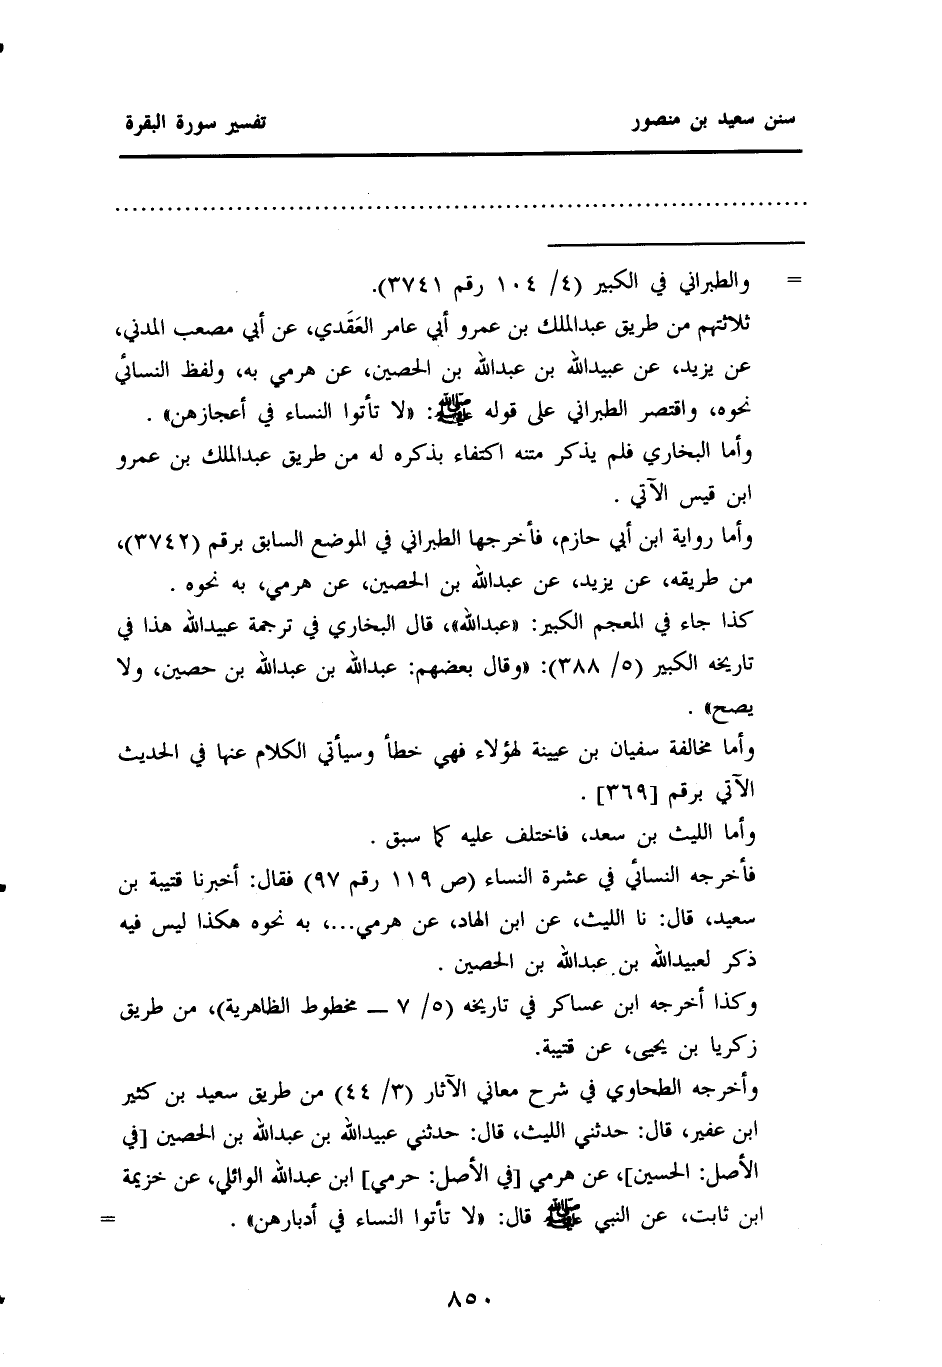 سنن سعيد بن منصور
تفسير سورة البقرة
= والطبراني في الكبير (٤/ ١٠٤ رقم ٣٧٤١).
ثلاثتهم من طريق عبدالملك بن عمرو أبي عامر العَقَدي، عن أبي مصعب المدني،
عن يزيد، عن عبيدالله بن عبدالله بن الحصين، عن هرمي به، ولفظ النسائي
نحوه، واقتصر الطبراني على قوله ﷺ: «لا تأتوا النساء في أعجازهن» .
وأما البخاري فلم يذكر متنه اكتفاء بذكره له من طريق عبدالملك بن عمرو
ابن قيس الآتي .
وأما رواية ابن أبي حازم، فأخرجها الطبراني في الموضع السابق برقم (٣٧٤٢)،
من طريقه، عن يزيد، عن عبدالله بن الحصين، عن هرمي، به نحوه .
كذا جاء في المعجم الكبير: «عبدالله»، قال البخاري في ترجمة عبيدالله هذا في
تاريخه الكبير (٥/ ٣٨٨): «وقال بعضهم: عبدالله بن عبدالله بن حصين، ولا
يصح» .
وأما مخالفة سفيان بن عيينة لهؤلاء فهي خطأ وسيأتي الكلام عنها في الحديث
الآتي برقم [٣٦٩] .
وأما الليث بن سعد، فاختلف عليه كما سبق .
فأخرجه النسائي في عشرة النساء (ص ١١٩ رقم ٩٧) فقال: أخبرنا قتيبة بن
سعيد، قال: نا الليث، عن ابن الهاد، عن هرمي...، به نحوه هكذا ليس فيه
ذكر لعبيدالله بن عبدالله بن الحصين .
وكذا أخرجه ابن عساكر في تاريخه (٥/ ٧ ــ مخطوط الظاهرية)، من طريق
زكريا بن يحيى، عن قتيبة.
وأخرجه الطحاوي في شرح معاني الآثار (٣/ ٤٤) من طريق سعيد بن كثير
ابن عفير، قال: حدثني الليث، قال: حدثني عبيدالله بن عبدالله بن الحصين [في
الأصل: الحسين]، عن هرمي [في الأصل: حرمي] ابن عبدالله الوائلي، عن خزيمة
ابن ثابت، عن النبي ﷺ قال: «لا تأتوا النساء في أدبارهن» . =
٨٥٠